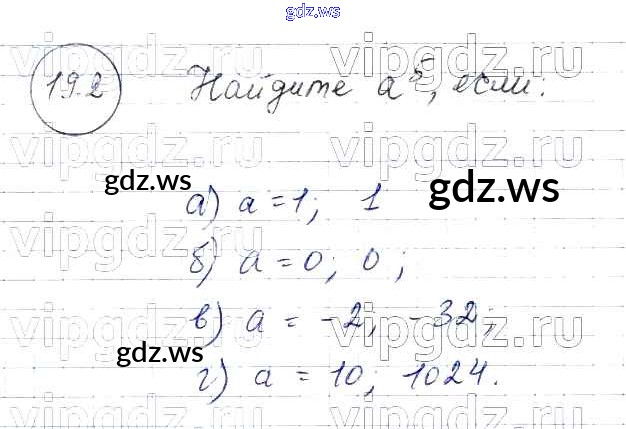 gdz.ws
vipgdz.ru vipgdz.ru
19.2 Найдите a⁵, если:
vipgdz.ru vipgdz.ru
gdz.ws gdz.ws
а) a = 1; 1
vipgdz.ru vipgdz.ru
б) a = 0; 0;
в) a = -2; -32;
vipgdz.ru vipgdz.ru
gdz.ws
г) a = 10; 1024.
vipgdz.ru vipgdz.ru